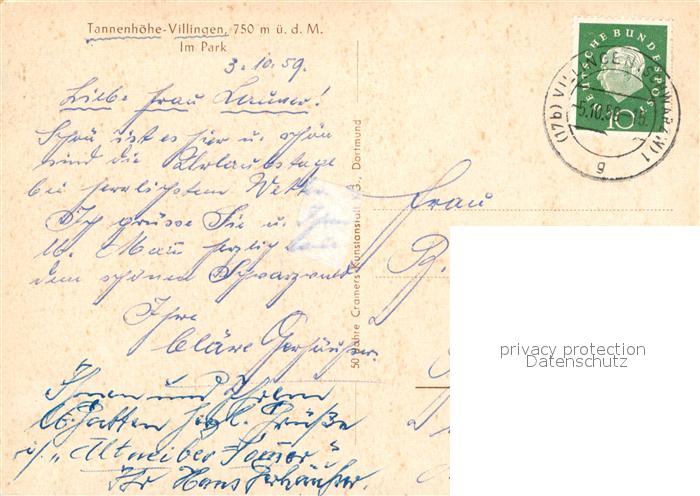 Tannenhöhe-Villingen, 750 m ü. d. M.
Im Park
3.10.59.
Liebe Frau
Schön ist es hier u. schön
sind die Urlaubstage
bei herrlichstem
Ich grüsse Sie u.
lb. Mann herzlich
dem schönen Schwarzwald
Ihre
Cläre Gerhäuser.
Ihnen und Ihrem
lb. Gatten herzl. Grüße
i/. „Altweiber Sommer"
Ihr Hans Gerhäuser.
50 Jahre Cramers Kunstanstalt KG., Dortmund
DEUTSCHE BUNDESPOST
10
(17b) VILLINGEN (SCHWARZW) 1
5.10.59
g
Frau
privacy protection
Datenschutz